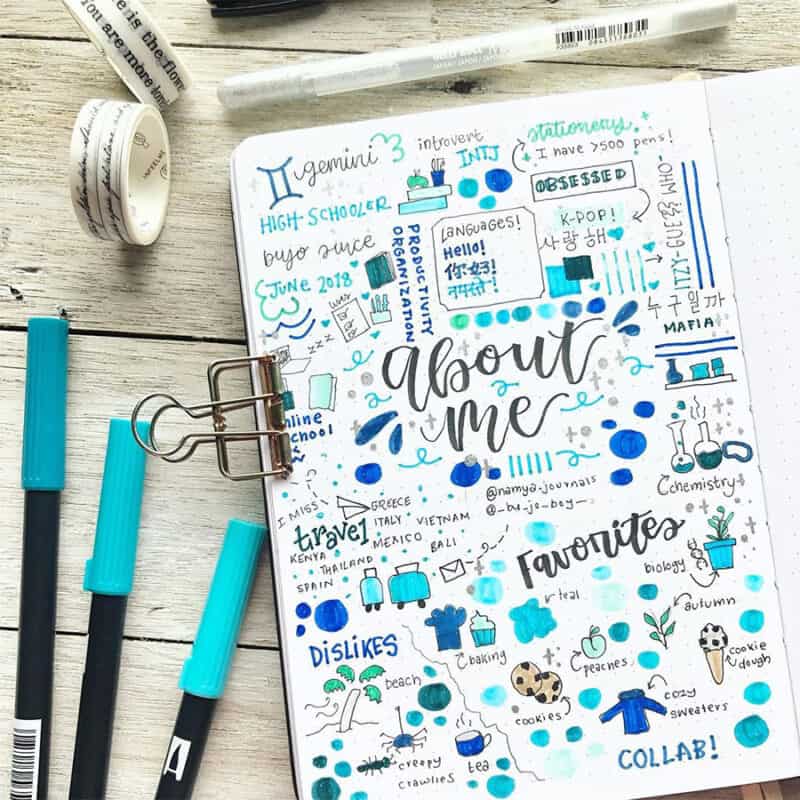 e is the flow
You are more lov
gemini
introvert
INTJ
stationery
I have >500 pens!
OBSESSED
HIGH-SCHOOLER
bujo since
JUNE 2018
PRODUCTIVITY
ORGANIZATION
LANGUAGES!
Hello!
你好!
नमस्ते!
K-POP!
사랑해
ITZY-GUESS WHO
누구일까
MAFIA
zzz
about
me
nline
school
I MISS
travel
GREECE
ITALY
VIETNAM
KENYA
MEXICO
BALI
THAILAND
SPAIN
@namya.journals
@_bu_jo_boy_
chemistry
Favorites
biology
teal
autumn
baking
peaches
cookie
dough
cookies
cozy
sweaters
DISLIKES
beach
creepy
crawlies
tea
COLLAB!
A